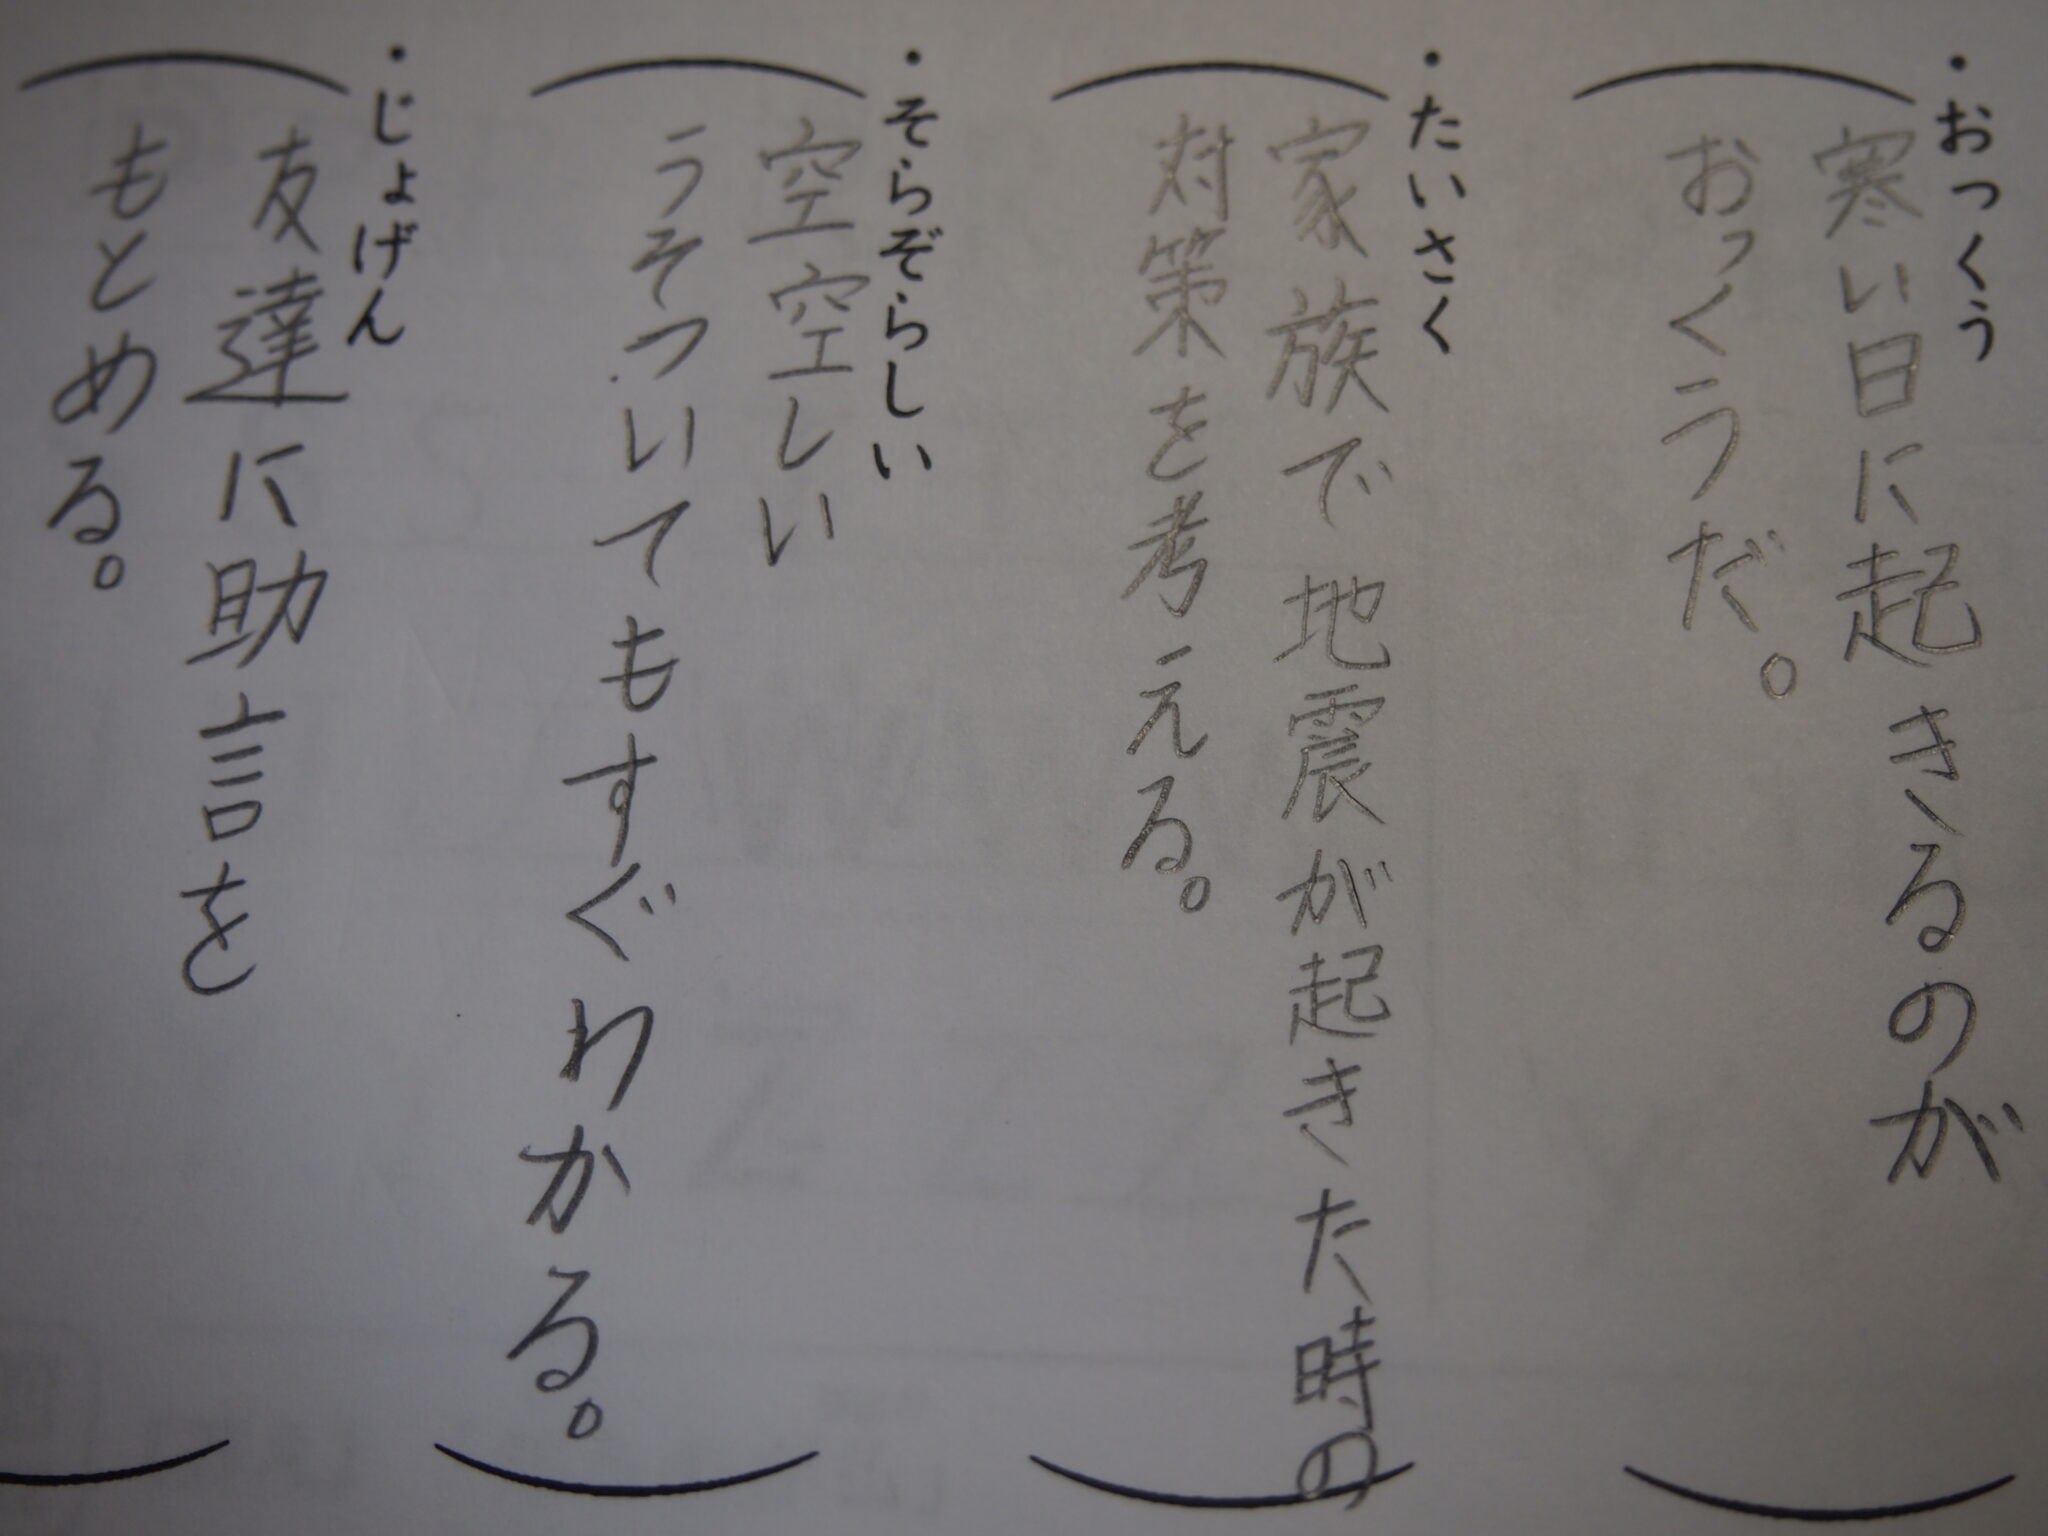 ・おっくう
寒い日に起きるのが
おっくうだ。
・たいさく
家族で地震が起きた時の
対策を考える。
・そらぞらしい
空空しい
うそついてもすぐわかる。
・じょげん
友達に助言を
もとめる。